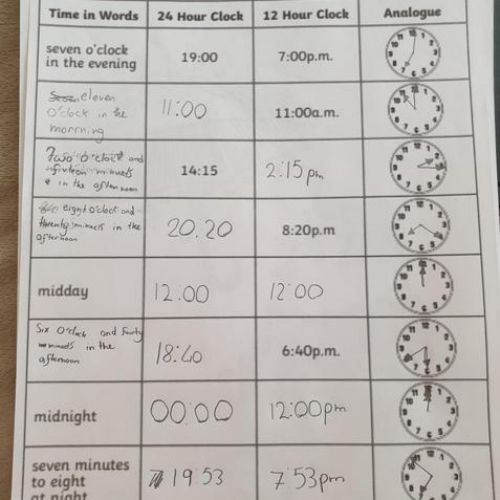 Time in Words 24 Hour Clock 12 Hour Clock Analogue
seven o'clock
in the evening
19:00 7:00p.m.
eleven
o'clock in the
morning
11:00 11:00a.m.
Two o'clock and
minuets
in the afternoon
14:15 2:15pm
eight o'clock and
in the
afternoon
20.20 8:20p.m
midday 12.00 12:00
Six o'clock and
in the
afternoon
18:40 6:40p.m.
midnight 00:00 12:00pm
seven minutes
to eight
at night
19:53 7:53pm